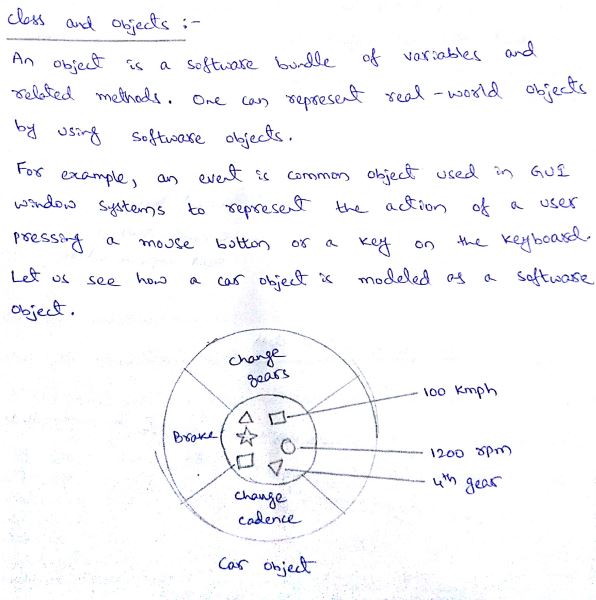 class and objects :-
An object is a software bundle of variables and
related methods. One can represent real-world objects
by using software objects.
For example, an event is common object used in GUI
window systems to represent the action of a user
pressing a mouse button or a key on the keyboard.
Let us see how a car object is modeled as a software
object.
change
gears
100 kmph
Brake
1200 rpm
4th gear
change
cadence
Car object